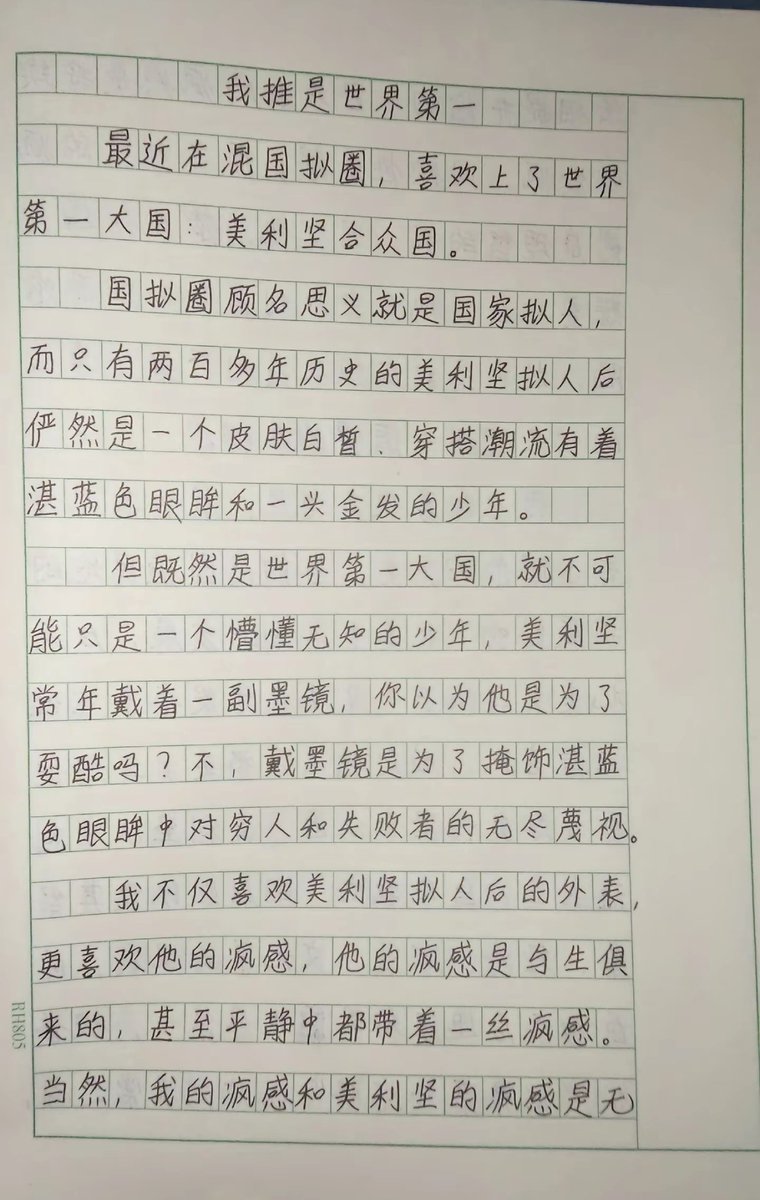 我推是世界第一
最近在混国拟圈，喜欢上了世界
第一大国：美利坚合众国。
国拟圈顾名思义就是国家拟人，
而只有两百多年历史的美利坚拟人后
俨然是一个皮肤白皙、穿搭潮流有着
湛蓝色眼眸和一头金发的少年。
但既然是世界第一大国，就不可
能只是一个懵懂无知的少年，美利坚
常年戴着一副墨镜，你以为他是为了
耍酷吗？不，戴墨镜是为了掩饰湛蓝
色眼眸中对穷人和失败者的无尽蔑视。
我不仅喜欢美利坚拟人后的外表，
更喜欢他的疯感，他的疯感是与生俱
来的，甚至平静中都带着一丝疯感。
当然，我的疯感和美利坚的疯感是无
RH805